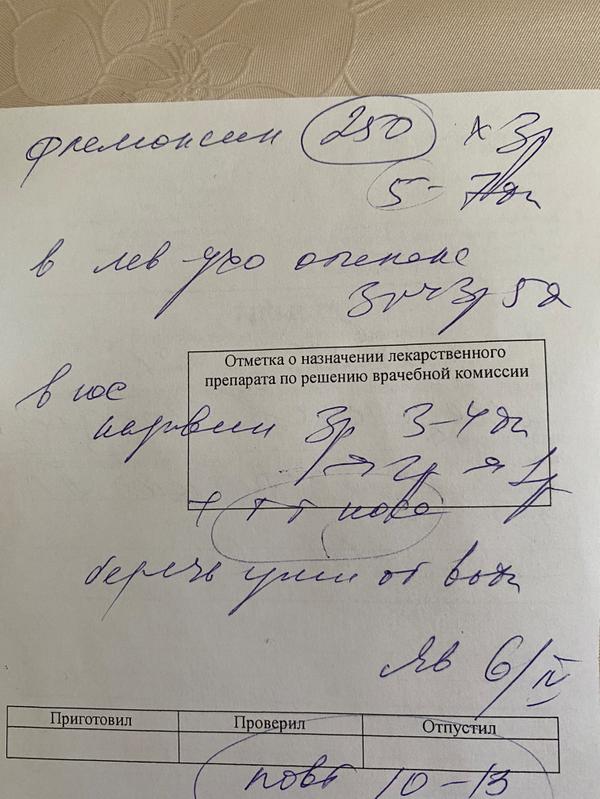 флемоксин 250 х 3р
5-7дн
в лев ухо отипакс
3р 5д
Отметка о назначении лекарственного
препарата по решению врачебной комиссии
в нос
називин 3р 3-4 дн
→ 2р → 1р
+ т т носа
беречь уши от воды
Яв 6/IV
Приготовил Проверил Отпустил
повт 10-13